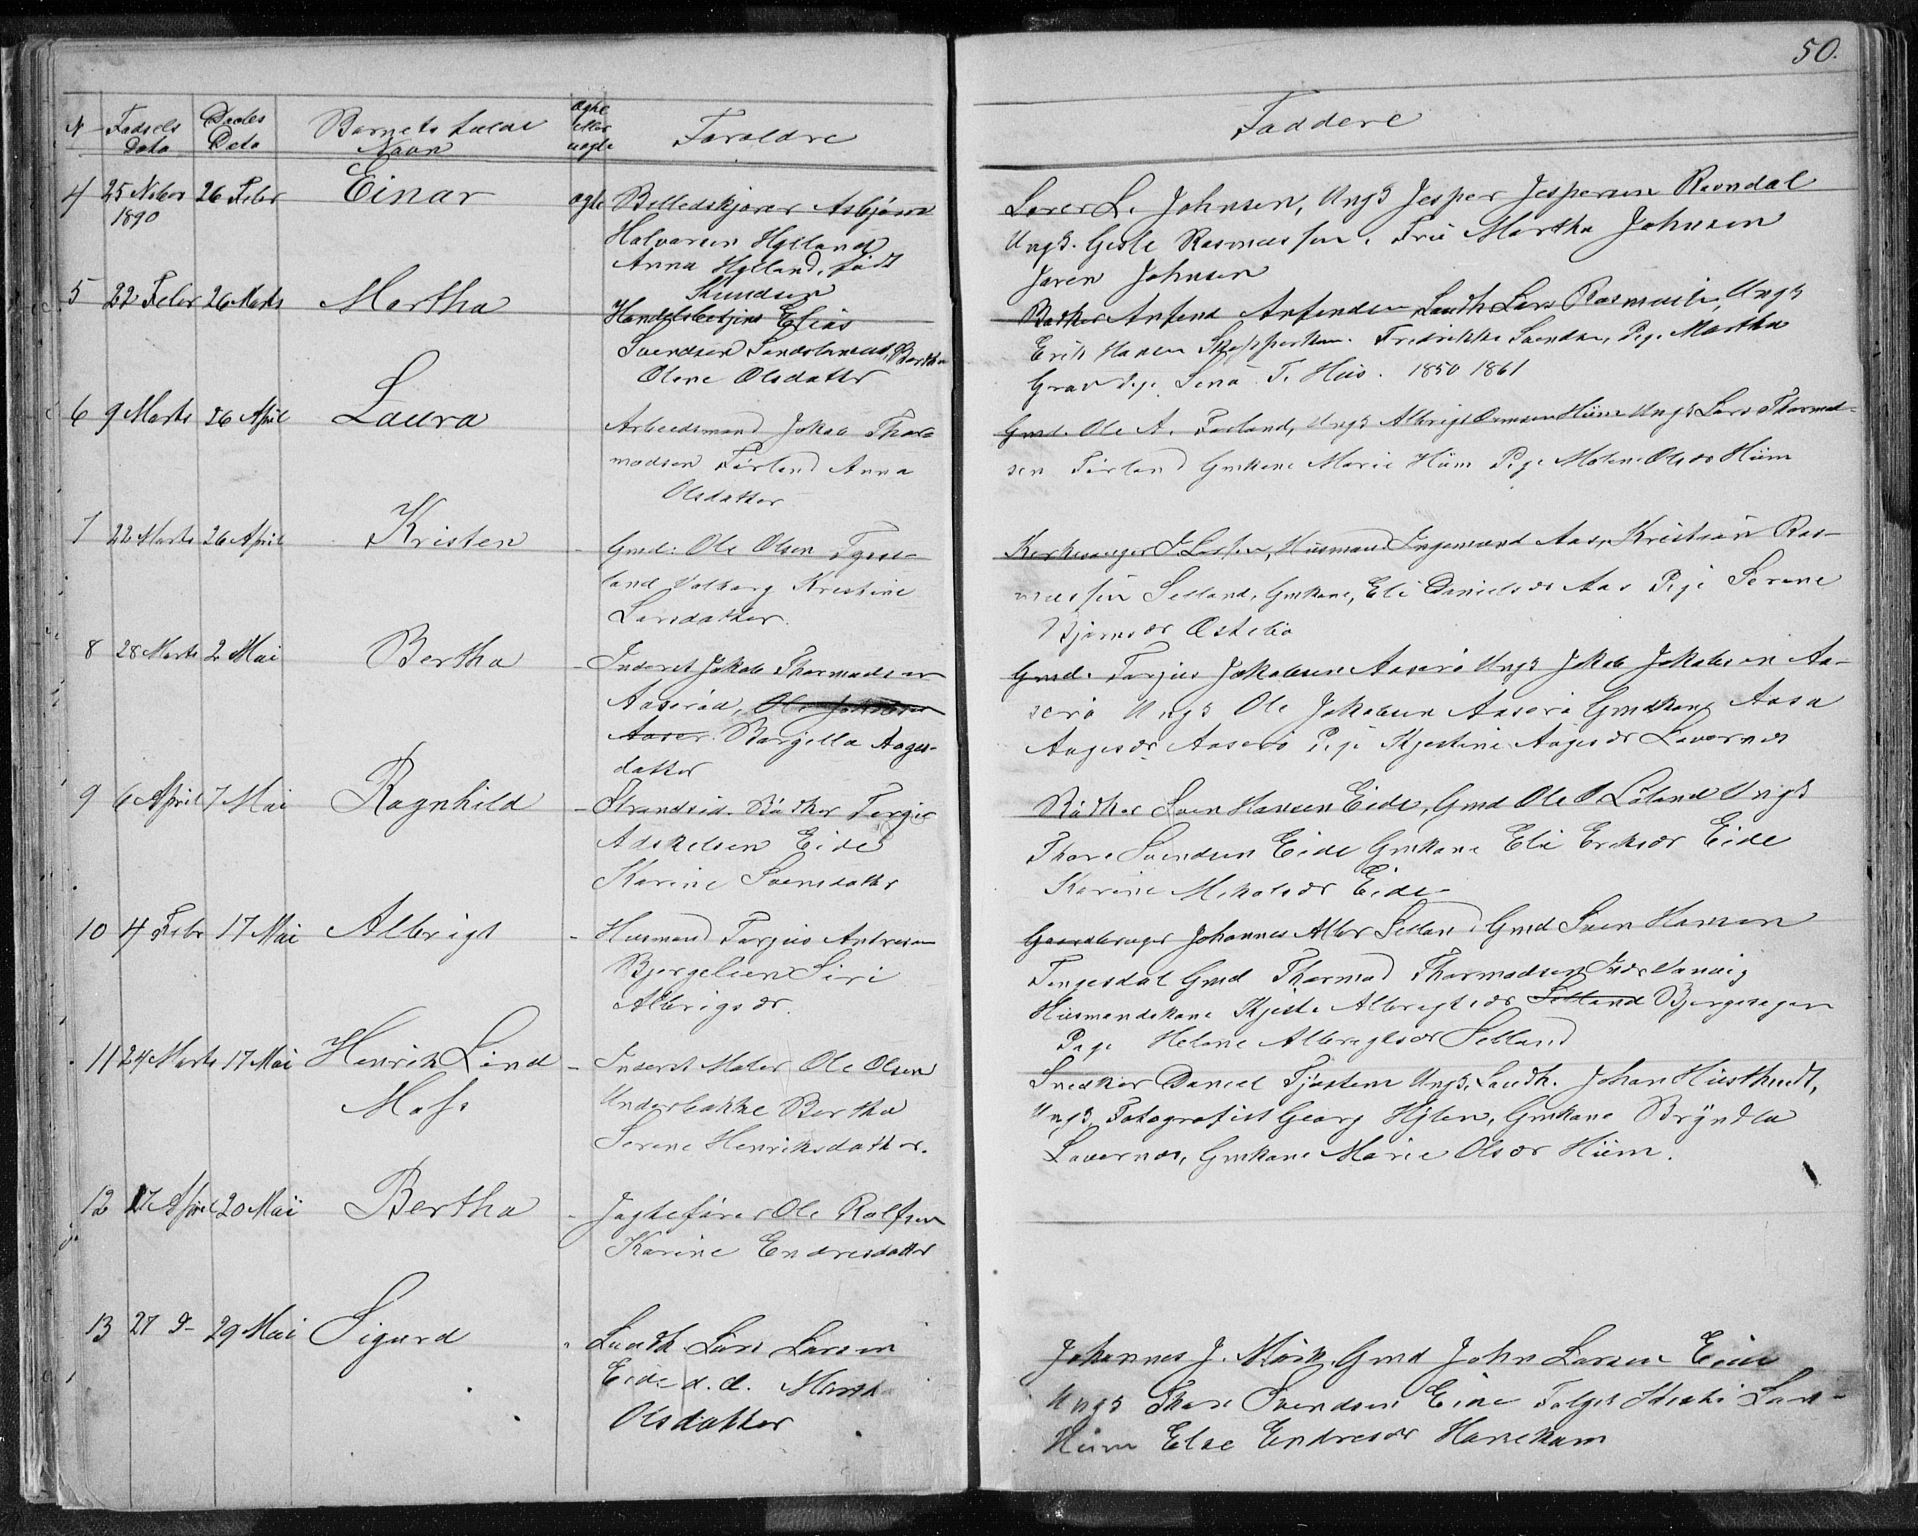 50.
N Fødsels Data Daabs Data Barnets fulde Navn ægte eller uægte Foreldre
Faddere
4 25 Nvbr 1890 26 Febr Einar ægte Billedskjærer Asbjørn
Halvorsen Hylland
Anna Hylland, født
Knudsen
Lærer L. Johnsen, Ungk Jesper Jespersen Ravndal
Ungk. Gisle Rasmussen, Frü Martha Johnsen
Johnsen
5 22 Febr 26 Marts Martha Handelsbetjent Elias
Svendsen Bertha
Oline Olsdatter
Bødker Anfend Anfendsen Landh Lars Ungk
Erik Hansen Fredrikke Svendsen, Pige Martha
Pige Sena T. Hüs. 1850 1861
6 9 Marts 26 April Laura Arbeidsmand Jakob Thor-
modsen Førland Anna
Olsdatter
Gmd. Ole A. Førland, Ungk Albrigt Hüm Ungk Lars Thormod-
sen Førland Gmkone Marie Hüm Pige Malene Olsdr Hüm
7 22 Marts 26 April Kristen - Gmd: Ole Olsen Tysse-
land Valborg Kristine
Larsdatter.
Kirkesanger J Larsen, Husmand Ingemund Aas, Kristian Ras-
mussen Selland, Gmkone, Eli Danielsdr Aas Pige Serene
Bjørnsdr Østebø
8 28 Marts 2 Mai Bertha - Inderst Jakob Thormodsen
Aaserød, Ole Jakobsen
Aaser. Borgella Aages-
datter
Gmd. Torgius Jakobsen Aaserø Ungk Jakob Jakobsen Aa-
serø Ungk Ole Jakobsen Aaserø Gmdkone Aasa
Aagesdr Aaserø Pige Kjestine Aagesdr Lovernes
9 6 April 7 Mai Ragnhild - Strandsid. Bødker Torgie
Adskelsen Eide
Karine Svensdatter
Bødker Sven Hansen Eide, Gmd Ole O Løland Ungk
Thore Svendsen Eide Gmkone Eli Eriksdr Eide
Karine Mikalsdr Eide
10 4 Febr 17 Mai Albrigt - Husmand Torgius Andresen
Bjergelien Siri
Albrigsdr.
Gaardbruger Johannes Albr Selland Gmd Sven Hansen
Tengesdal Gmd Thormod Thormodsen Indr Vanvig
Husmandskone Kjeste Albregtsdr Selland
Pige Helene Albregtsdr Selland
11 24 Marts 17 Mai Henrik Lind
Moss
- Inderst Maler Ole Olsen
Underbakke Bertha
Serene Henriksdatter.
Snedker Daniel Tjøstem Ungk, Landh. Johan
Ungk, Fotografist Georg Gmkone Bryndla
Lovernes, Gmkone Marie Olsdr Hüm.
12 17 April 20 Mai Bertha - Jagtefører Ole Rolfsen
Karine Endresdatter
13 27 d- 29 Mai Sigurd - Landh. Lars Larsen
Eide d. æ. Martha
Olsdatter
Johannes J. Mørk, Gmd John Larsen Eide
Ungk Thore Svendsen Eide
Hüm Else Endresdr Hanekam